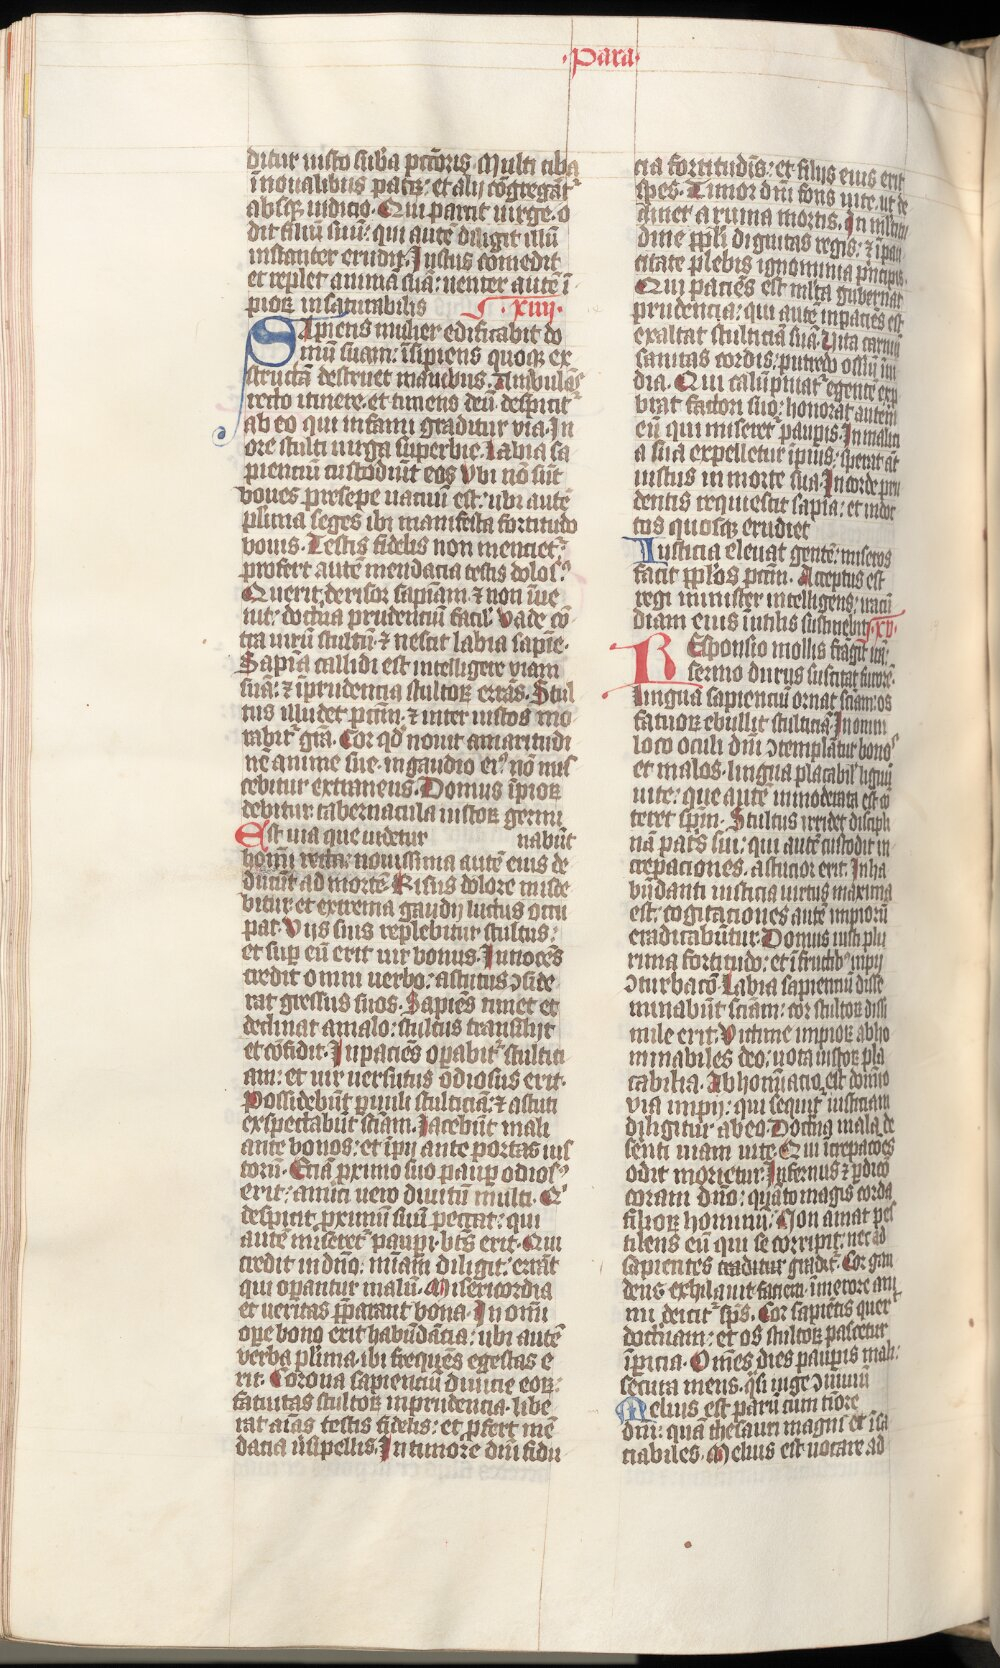 ·Para·
ditur iusto sub̄a pctōris. Multi cibꝫ
ī noualibus patꝝ: et alij cōgregāt᷑
absqꝫ iudicio. Qui parcit uirge. o
dit filiū suū: qui autē diligit illū
instanter erudit. Justus comedit
et replet animā suā: uenter autē ī
pioꝝ insaturabilis ·xiiij·
Sapiens mulier edificabit do
mū suam: īsipiens quoqꝫ ex
structā destruet manibus. Ambulās
recto itinere. et timens deū: despicit᷑
ab eo qui infami graditur via. In
ore stulti uirga superbie. Labia sa
pienciū custodiūt eos. Vbi nō sūt
boues presepe uacuū est: ubi autē
plima seges ibi manifesta fortitudo
bouis. Testis fidelis non mentiet᷑:
profert autē mendacia testis dolosꝰ
Querit derisor sapiam. ⁊ non īue
nit: doctrīa prudenciū facilꝭ. Vade cō
tra uirū stultū. ⁊ nescit labia sapīe.
Sapīa callidi est intelligere viam
suā: ⁊ īprudencia stultoꝝ errās. Stul
tus illudet pctm̄. ⁊ inter iustos mo
rabit᷑ grā. Cor qd̄ nouit amaritudi
nē anime sue. in gaudio eiꝰ nō mis
cebitur extraneus. Domus īpioꝝ
debitur: tabernacula iustoꝝ germi
Est uia que uidetur nabūt
homī recta: nouissima autē eius de
ducūt ad mortē. Risus dolore misce
bitur et extrema gaudij luctus occu
pat. Vijs suis replebitur stultus:
et suꝑ eū erit uir bonus. Innocēs
credit omni uerbo: astutus ꝯside
rat gressus suos. Sapiēs timet et
declinat a malo: stultus transilit
et cōfidit. Inpaciēs oꝑabit᷑ stulti
am: et uir uersutus odiosus erit.
Possidebūt ꝑuuli stulticiā: ⁊ astuti
exspectabūt sciam. Jacebūt mali
ante bonos: et īpij ante portas ius
torū. Eciā ꝓximo suo paupꝑ odiosꝰ
erit: amici uero diuitū multi. Qͥ
despicit ꝓximū suū peccat: qui
autē miseret᷑ pauꝑi. bt̄s erit. Qui
credit in dnō. miām diligit: errāt
qui oꝑantur malū. Misericordia
et ueritas pꝑarant bona. In omī
oꝑe bono erit habūdācia: ubi autē
verba plima. ibi frequēs egestas e
rit. Corona sapienciū diuicie eoꝝ:
fatuitas stultoꝝ inprudencia. libe
rat aīas testis fidelis: et ꝓfert mē
dacia uīspellis. In timore dm̄ fidu
cia fortitudīs: et filijs eius erit
spes. Timor dnī fons uite. ut de
clinet a ruina mortis. In multitu
dine ppl̄i dignitas regis: ⁊ ī pau
citate plebis ignominia pncipis.
Qui paciēs est mlta gubernat᷑
prudencia: qui autē inpaciēs est
exaltat stulticiā suā. Vita carniū
sanitas cordis: putredo ossiū inui
dia. Qui calūpniat᷑ egentē exp
brat factori suo: honorat autem
eū qui miseret᷑ pauꝑis. In malici
a sua expelletur īpius: sperat āt
iustus in morte sua. In corde pru
dentis requiescit sapīa: et indoc
tos quosqꝫ erudiet
Iusticia eleuat gentē: miseros
facit ppl̄os pctm̄. Acceptus est
regi minister intelligens: iracū
diam eius inutilis sustinebit ·xv·
Responsio mollis frāgit irā:
sermo durus suscitat furorē.
Lingua sapienciū ornat sciam: os
fatuoꝝ ebullit stulticiā. In omni
loco oculi dnī ꝯtemplātur bonos
et malos. lingua placabilꝭ lignū
uite: que autē immoderata est cō
teret spm̄. Stultus irridet discipli
nā pat᷑s sui: qui autē custodit in
crepaciones. astucior erit. In ha
būdanti iusticia uirtus maxima
est: cogitaciones autē impiorū
eradicabūtur. Domus iusti plu
rima fortitudo: et ī fructibꝰ impij
ꝯturbacō. Labia sapienciū disse
minabūt sciam: cor stultoꝝ dissi
mile erit. Victime impioꝝ abho
minabiles deo: uota iustoꝝ pla
cabilia. Abhominacio est domīo
via impij: qui sequit᷑ iusticiam
diligitur ab eo. Doctrīa mala de
senti uiam uite. Qui īcrepacōes
odit morietur. Infernus ⁊ ꝑdicō
coram dnō: quāto magis corda
filioꝝ hominū. Non amat pes
tilens eū qui se corripit: nec ad
sapientes graditur. Cor gau
dens exhilarat faciem: ī merore ani
mi deicit᷑ sps̄. Cor sapiētis querit
doctrinam: et os stultoꝝ pascetur
īpicia. Omēs dies pauꝑis mali:
secura mens. qͣsi iuge ꝯuiuiū
Melius est parū cum tiōre
dnī: quā thesauri magni et īsa
ciabiles. Melius est uocare ad